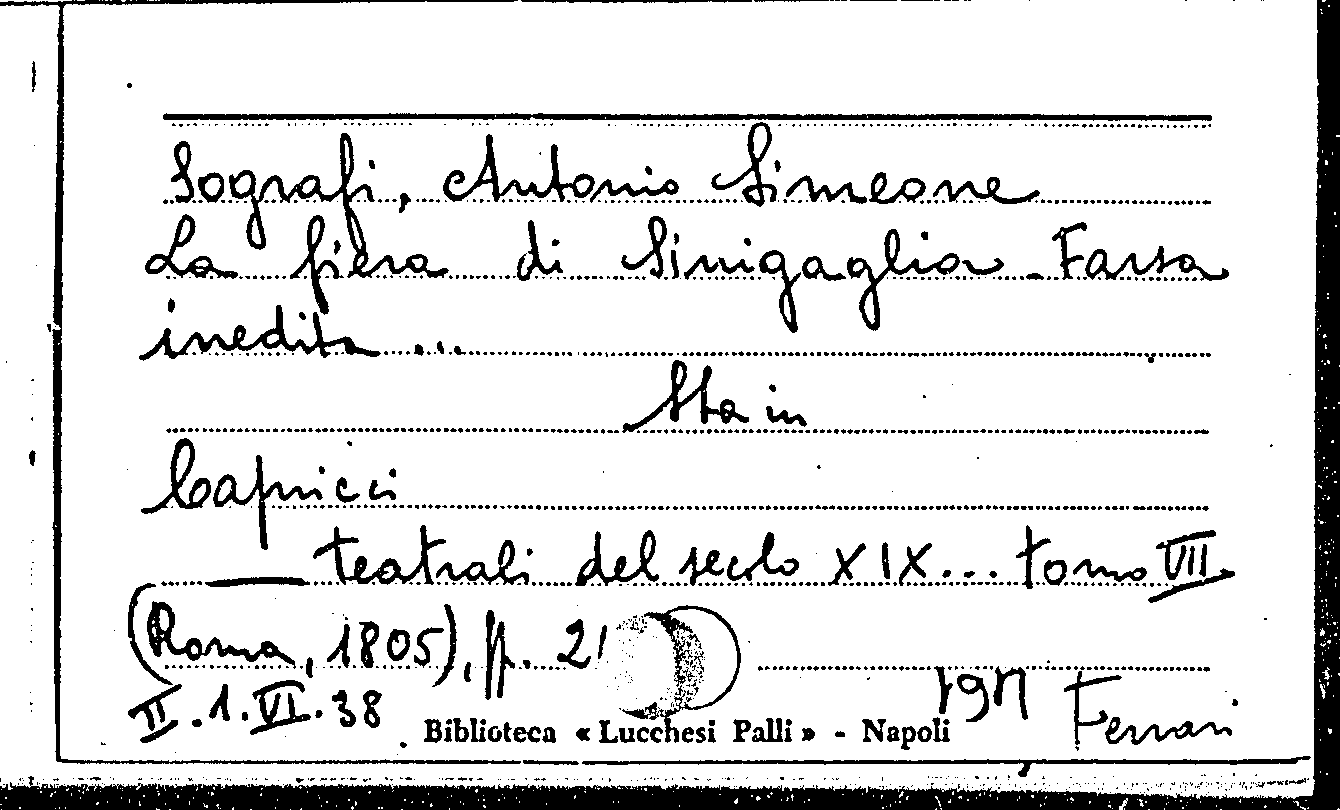 Sografi, Antonio Simeone
La fiera di Sinigaglia - Farsa
inedita ...
Sta in
Capricci
teatrali del secolo XIX... tomo VII
(Roma, 1805), pp. 2
II.1.VI.38
Biblioteca « Lucchesi Palli » - Napoli
Ferrari